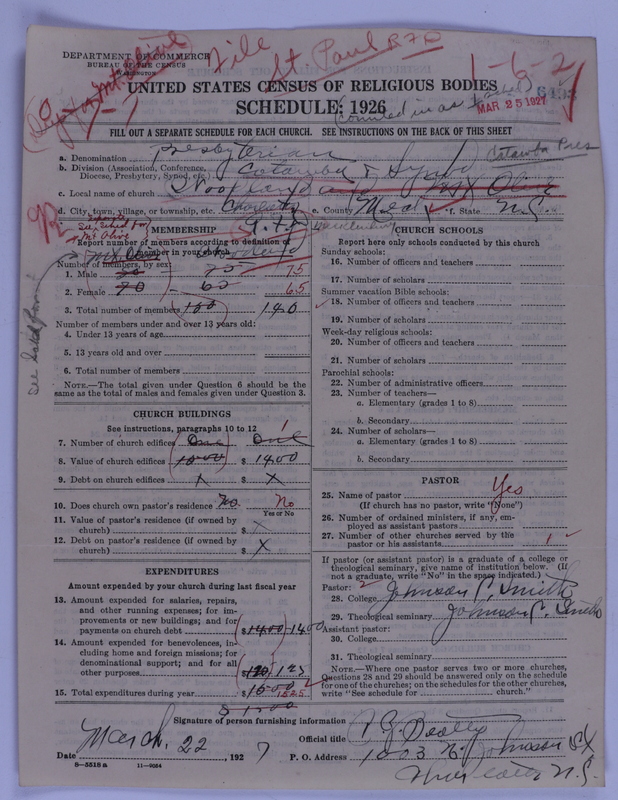 File
St Paul RFD
1-6-2
DEPARTMENT OF COMMERCE
BUREAU OF THE CENSUS
WASHINGTON
UNITED STATES CENSUS OF RELIGIOUS BODIES
SCHEDULE, 1926
MAR 25 1927
FILL OUT A SEPARATE SCHEDULE FOR EACH CHURCH. SEE INSTRUCTIONS ON THE BACK OF THIS SHEET
a. Denomination Presbyterian
Catawba Pres
b. Division (Association, Conference, Catawba Synod
Diocese, Presbytery, Synod, etc.)
c. Local name of church Woodland and Mt Olive
d. City, town, village, or township, etc. Charlotte e. County f. State N.C.
Mecklenburg
MEMBERSHIP
Report number of members according to definition of
member in your church
Number of members, by sex:
1. Male 75 75
2. Female 70 65 65
3. Total number of members 140
Number of members under and over 13 years old:
4. Under 13 years of age
5. 13 years old and over
6. Total number of members
NOTE.—The total given under Question 6 should be the
same as the total of males and females given under Question 3.
CHURCH BUILDINGS
See instructions, paragraphs 10 to 12
7. Number of church edifices One One 1
8. Value of church edifices $ 1400
9. Debt on church edifices X $ X
10. Does church own pastor's residence No No
Yes or No
11. Value of pastor's residence (if owned by
church) $
12. Debt on pastor's residence (if owned by
church) $ X
EXPENDITURES
Amount expended by your church during last fiscal year
13. Amount expended for salaries, repairs,
and other running expenses; for im-
provements or new buildings; and for
payments on church debt $1400 1400
14. Amount expended for benevolences, in-
cluding home and foreign missions; for
denominational support; and for all
other purposes 125
15. Total expenditures during year $ 1525
CHURCH SCHOOLS
Report here only schools conducted by this church
Sunday schools:
16. Number of officers and teachers
17. Number of scholars
Summer vacation Bible schools:
18. Number of officers and teachers
19. Number of scholars
Week-day religious schools:
20. Number of officers and teachers
21. Number of scholars
Parochial schools:
22. Number of administrative officers
23. Number of teachers—
a. Elementary (grades 1 to 8)
b. Secondary
24. Number of scholars—
a. Elementary (grades 1 to 8)
b. Secondary
PASTOR
25. Name of pastor Yes
(If church has no pastor, write "None")
26. Number of ordained ministers, if any, em-
ployed as assistant pastors
27. Number of other churches served by this
pastor or his assistants 1
If pastor (or assistant pastor) is a graduate of a college or
theological seminary, give name of institution below. (If
not a graduate, write "No" in the space indicated.)
Pastor:
28. College Johnson C. Smith
29. Theological seminary Johnson C. Smith
Assistant pastor:
30. College
31. Theological seminary
NOTE.—Where one pastor serves two or more churches,
Questions 28 and 29 should be answered only on the schedule
for one of the churches; on the schedules for the other churches,
write "See schedule for church."
Signature of person furnishing information
Official title
Date March 22, 1927 P. O. Address 1003 C. Johnson St
Charlotte N.C.
8-5518 a 11-9054